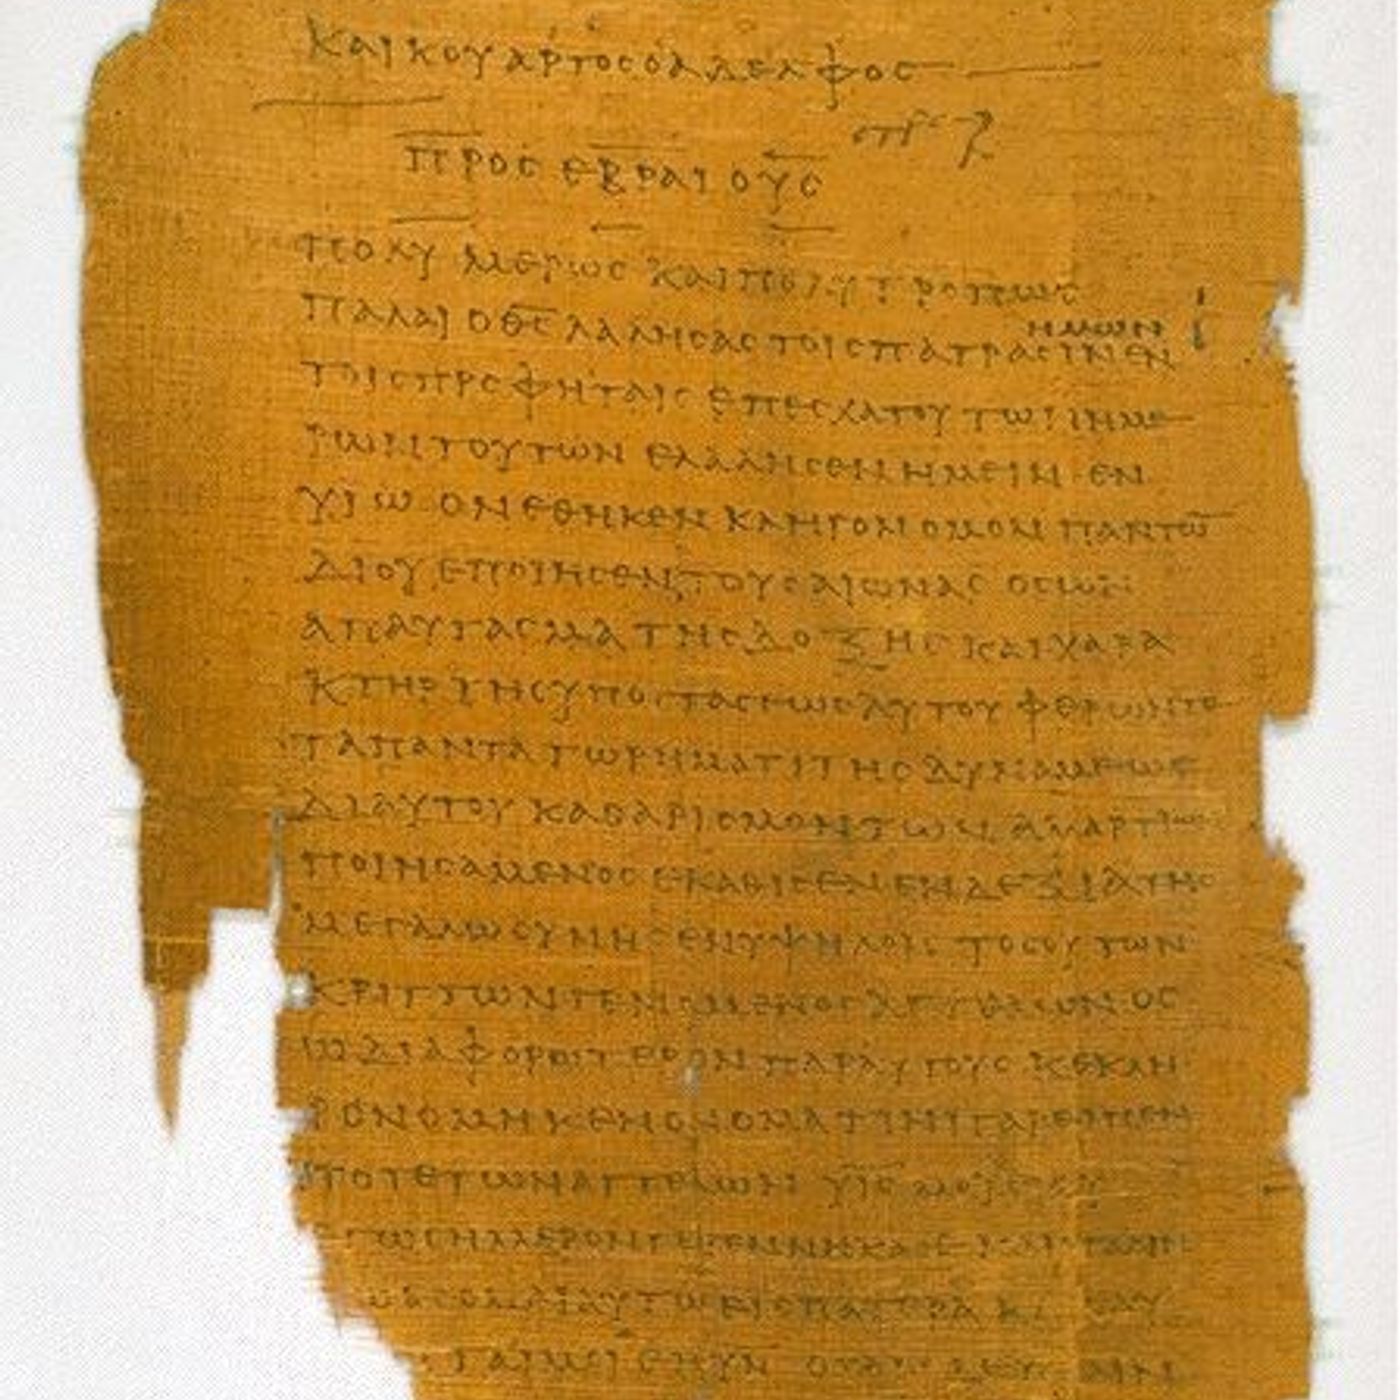 ΚΑΙ ΚΟΥΑΡΤΟΣ Ο ΑΔΕΛΦΟΣ
ΠΡΟΣ ΕΒΡΑΙΟΥΣ
ΠΟΛΥΜΕΡΩΣ ΚΑΙ ΠΟΛΥΤΡΟΠΩΣ
ΗΜΩΝ
ΠΑΛΑΙ Ο Θ̅Σ̅ ΛΑΛΗΣΑΣ ΤΟΙΣ ΠΑΤΡΑΣΙΝ ΕΝ
ΤΟΙΣ ΠΡΟΦΗΤΑΙΣ ΕΠ ΕΣΧΑΤΟΥ ΤΩΝ ΗΜΕ
ΡΩΝ ΤΟΥΤΩΝ ΕΛΑΛΗΣΕΝ ΗΜΕΙΝ ΕΝ
ΥΙΩ ΟΝ ΕΘΗΚΕΝ ΚΛΗΡΟΝΟΜΟΝ ΠΑΝΤΩ̅
ΔΙ ΟΥ ΕΠΟΙΗΣΕΝ ΤΟΥΣ ΑΙΩΝΑΣ ΟΣ ΩΝ
ΑΠΑΥΓΑΣΜΑ ΤΗΣ ΔΟΞΗΣ ΚΑΙ ΧΑΡΑ
ΚΤΗΡ ΤΗΣ ΥΠΟΣΤΑΣΕΩΣ ΑΥΤΟΥ ΦΕΡΩΝ ΤΕ
ΤΑ ΠΑΝΤΑ ΤΩ ΡΗΜΑΤΙ ΤΗΣ ΔΥΝΑΜΕΩΣ
ΔΙ ΑΥΤΟΥ ΚΑΘΑΡΙΣΜΟΝ ΤΩΝ ΑΜΑΡΤΙΩΝ
ΠΟΙΗΣΑΜΕΝΟΣ ΕΚΑΘΙΣΕΝ ΕΝ ΔΕΞΙΑ ΤΗΣ
ΜΕΓΑΛΩΣΥΝΗΣ ΕΝ ΥΨΗΛΟΙΣ ΤΟΣΟΥΤΩΝ
ΚΡΙΤΤΩΝ ΓΕΝΟΜΕΝΟΣ ΑΓΓΕΛΩΝ ΟΣ
Ω ΔΙΑΦΟΡΩΤΕΡΟΝ ΠΑΡ ΑΥΤΟΥΣ ΚΕΚΛΗ
ΡΟΝΟΜΗΚΕΝ ΟΝΟΜΑ ΤΙΝΙ ΓΑΡ ΕΙΠΕΝ
ΠΟΤΕ ΤΩΝ ΑΓΓΕΛΩΝ Υ̅Ι̅Σ̅ ΜΟΥ ΕΙ ΣΥ
ΓΩ ΣΗΜΕΡΟΝ ΓΕΓΕΝΝΗΚΑ ΣΕ ΚΑΙ ΠΑΛΙΝ
ΕΣΟΜΑΙ ΑΥΤΩ ΕΙΣ ΠΑΤΕΡΑ ΚΑΙ